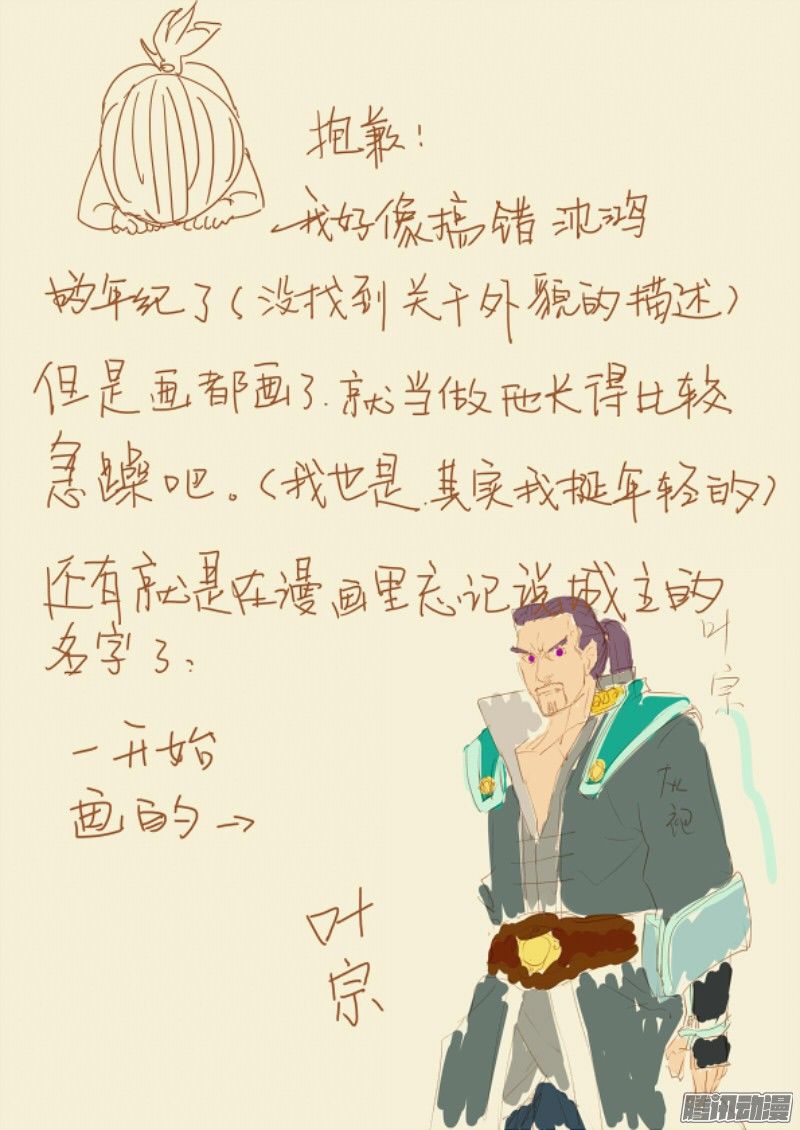 抱歉!
我好像搞错沈鸿
的年纪了(没找到关于外貌的描述)
但是画都画了.就当做他长得比较
急躁吧。(我也是.其实我挺年轻的)
还有就是在漫画里忘记说城主的
名字了:
叶宗
一开始
画的→
灰袍
叶宗
腾讯动漫